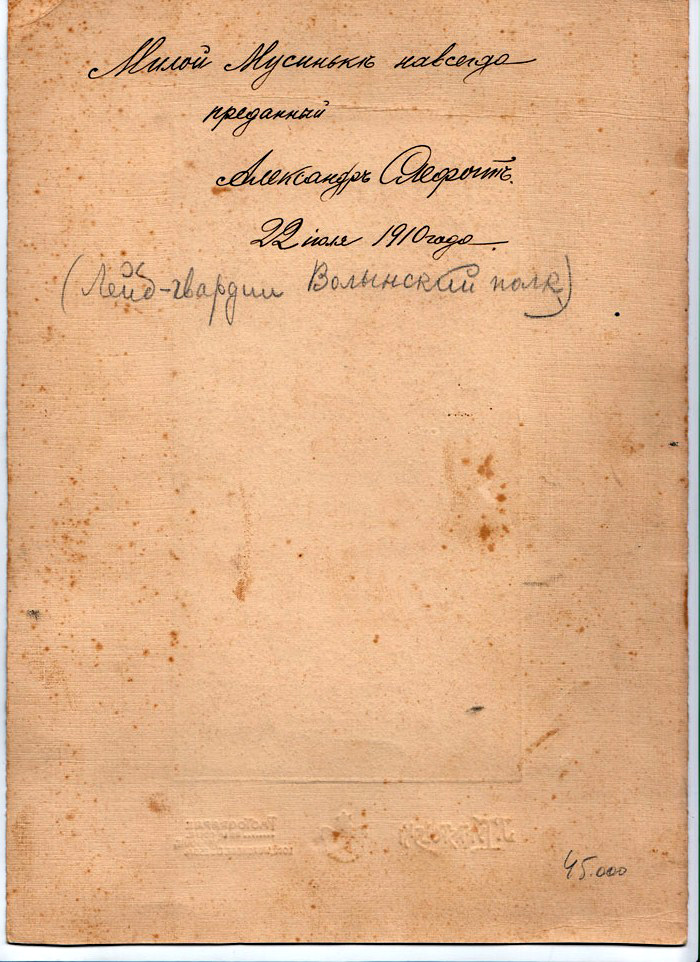 Милой Мусинькѣ навсегда
преданный
Александръ
22 іюля 1910 года
(Лейб-гвардии Волынский полк)
45.000